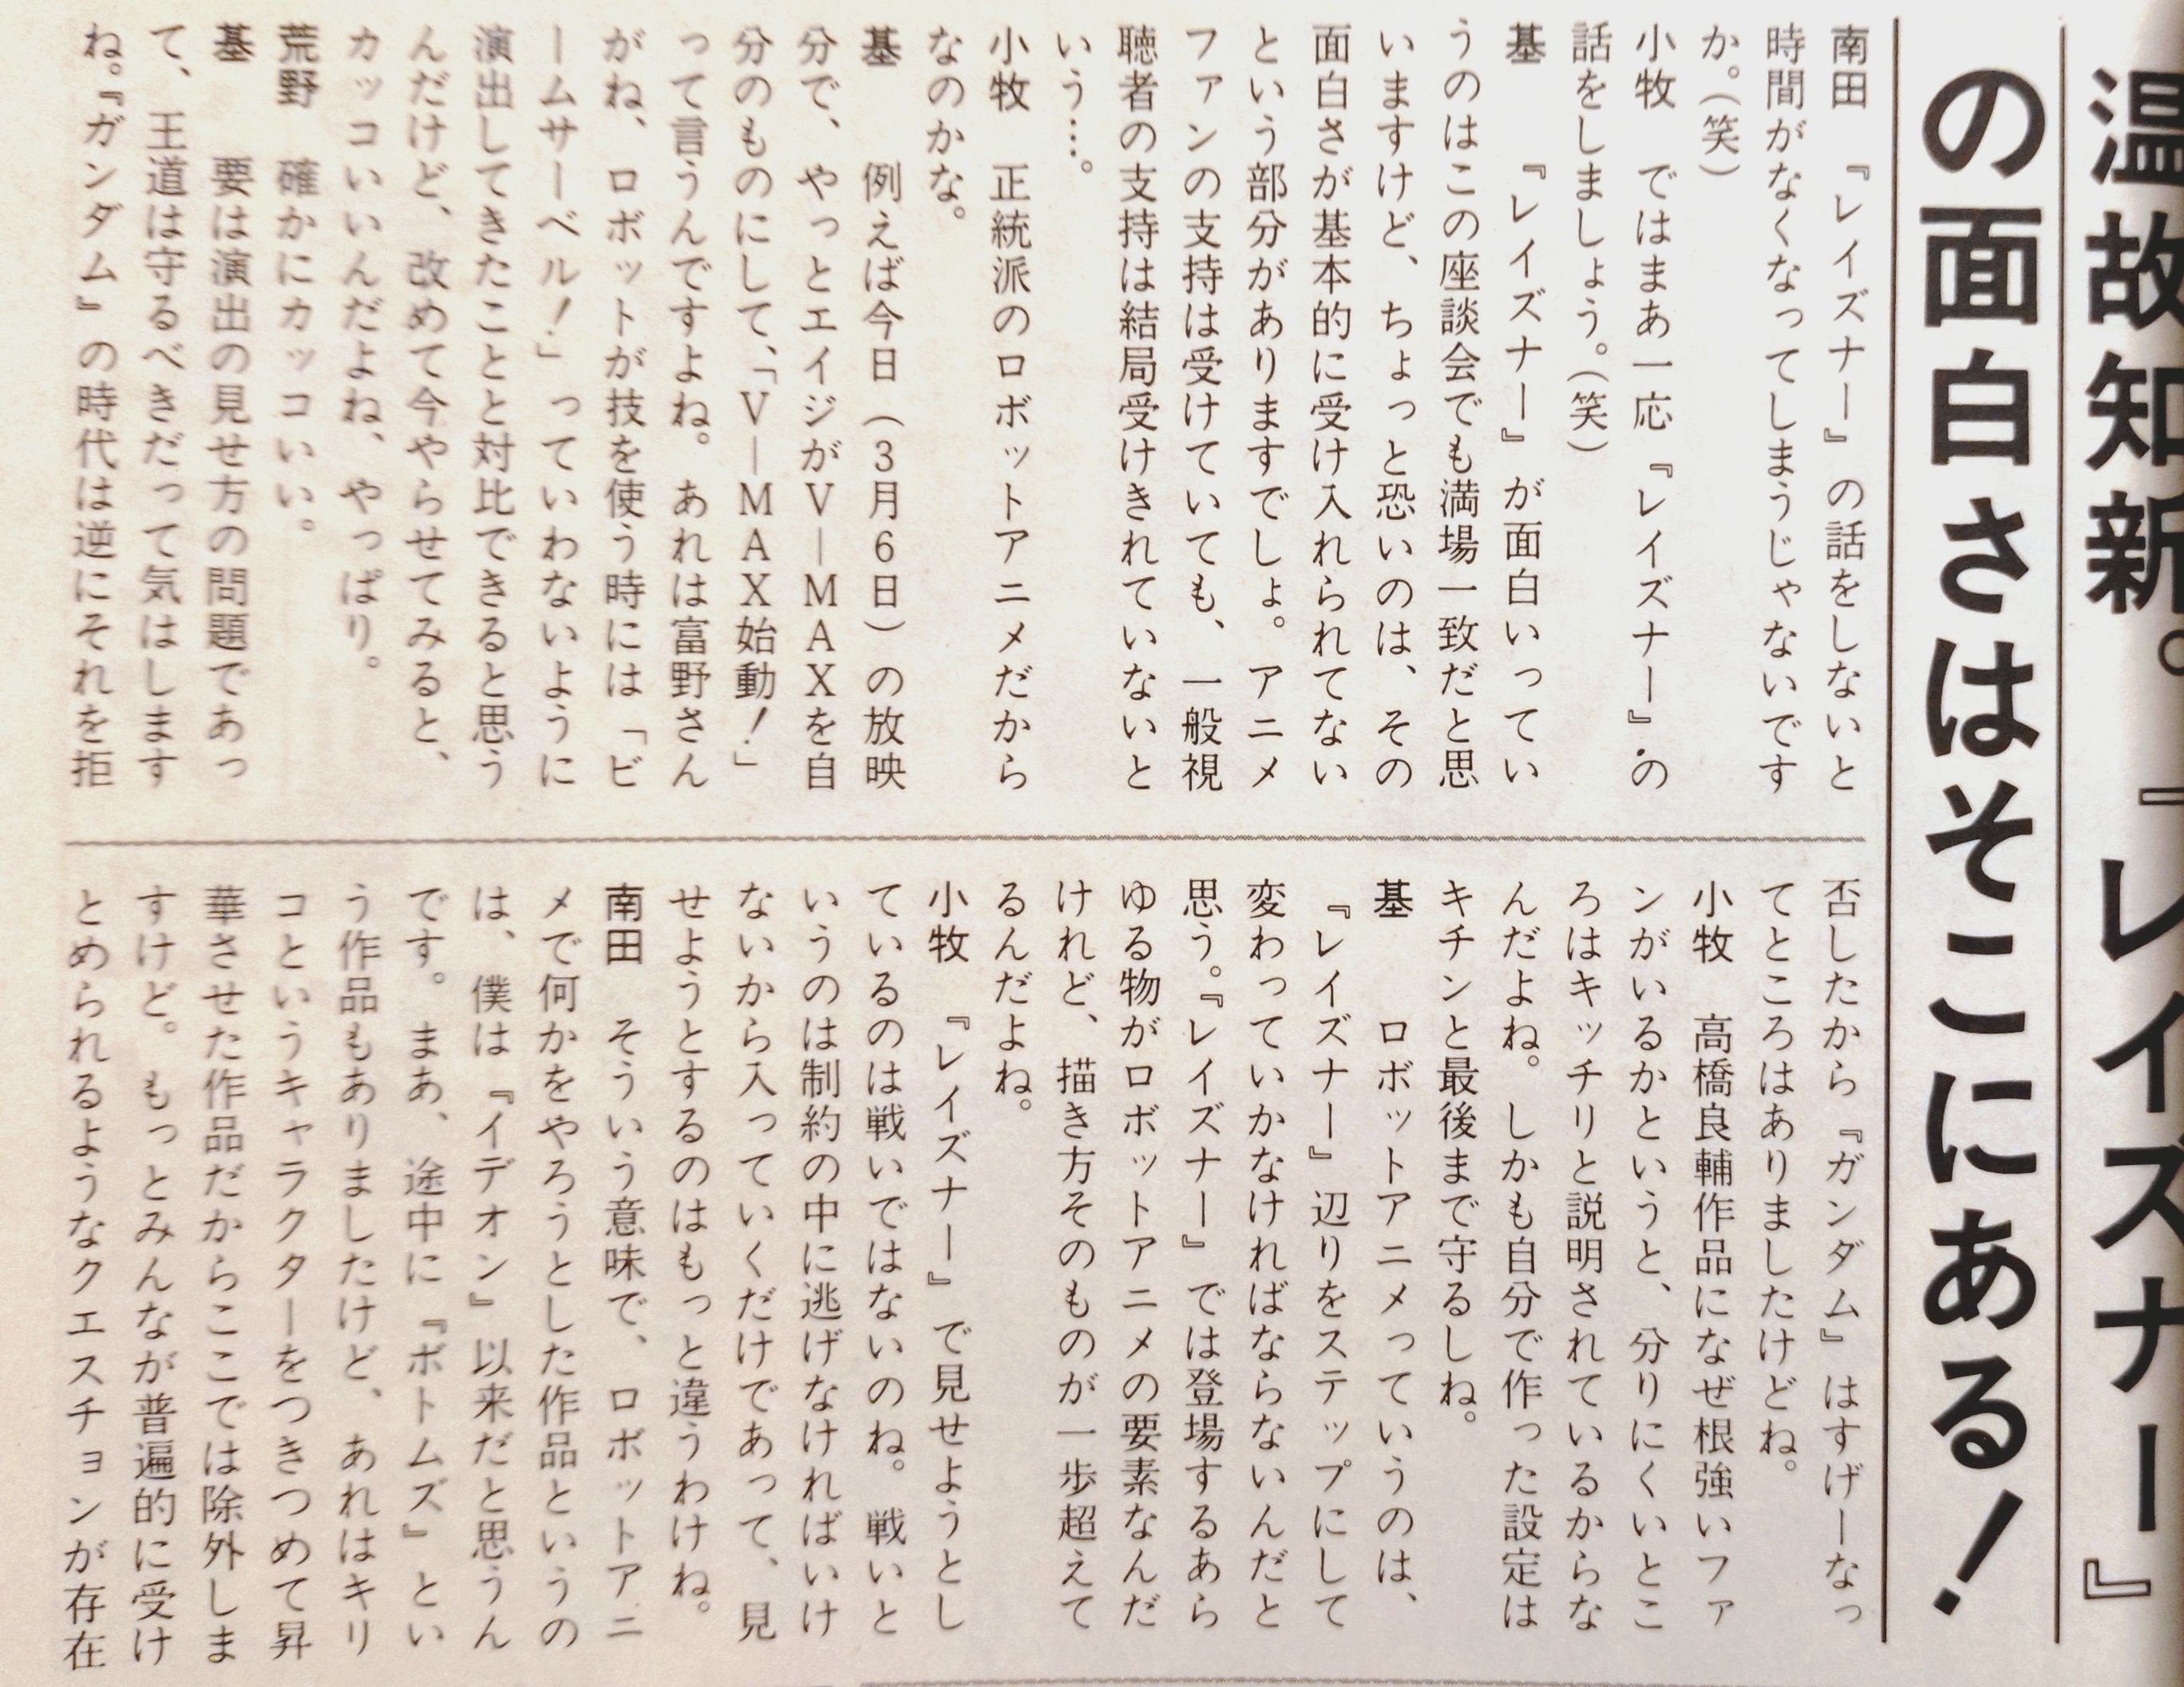 温故知新。『レイズナー』
の面白さはそこにある!
南田 『レイズナー』の話をしないと
時間がなくなってしまうじゃないです
か。(笑)
小牧 ではまあ一応『レイズナー』の
話をしましょう。(笑)
基 『レイズナー』が面白いってい
うのはこの座談会でも満場一致だと思
いますけど、ちょっと恐いのは、その
面白さが基本的に受け入れられてない
という部分がありますでしょ。アニメ
ファンの支持は受けていても、一般視
聴者の支持は結局受けきれていないと
いう…。
小牧 正統派のロボットアニメだから
なのかな。
基 例えば今日(3月6日)の放映
分で、やっとエイジがV―MAXを自
分のものにして、「V―MAX始動!」
って言うんですよね。あれは富野さん
がね、ロボットが技を使う時には「ビ
ームサーベル!」っていわないように
演出してきたことと対比できると思う
んだけど、改めて今やらせてみると、
カッコいいんだよね、やっぱり。
荒野 確かにカッコいい。
基 要は演出の見せ方の問題であっ
て、王道は守るべきだって気はします
ね。『ガンダム』の時代は逆にそれを拒
否したから『ガンダム』はすげーなっ
てところはありましたけどね。
小牧 高橋良輔作品になぜ根強いファ
ンがいるかというと、分りにくいとこ
ろはキッチリと説明されているからな
んだよね。しかも自分で作った設定は
キチンと最後まで守るしね。
基 ロボットアニメっていうのは、
『レイズナー』辺りをステップにして
変わっていかなければならないんだと
思う。『レイズナー』では登場するあら
ゆる物がロボットアニメの要素なんだ
けれど、描き方そのものが一歩超えて
るんだよね。
小牧 『レイズナー』で見せようとし
ているのは戦いではないのね。戦いと
いうのは制約の中に逃げなければいけ
ないから入っていくだけであって、見
せようとするのはもっと違うわけね。
南田 そういう意味で、ロボットアニ
メで何かをやろうとした作品というの
は、僕は『イデオン』以来だと思うん
です。まあ、途中に『ボトムズ』とい
う作品もありましたけど、あれはキリ
コというキャラクターをつきつめて昇
華させた作品だからここでは除外しま
すけど。もっとみんなが普遍的に受け
とめられるようなクエスチョンが存在